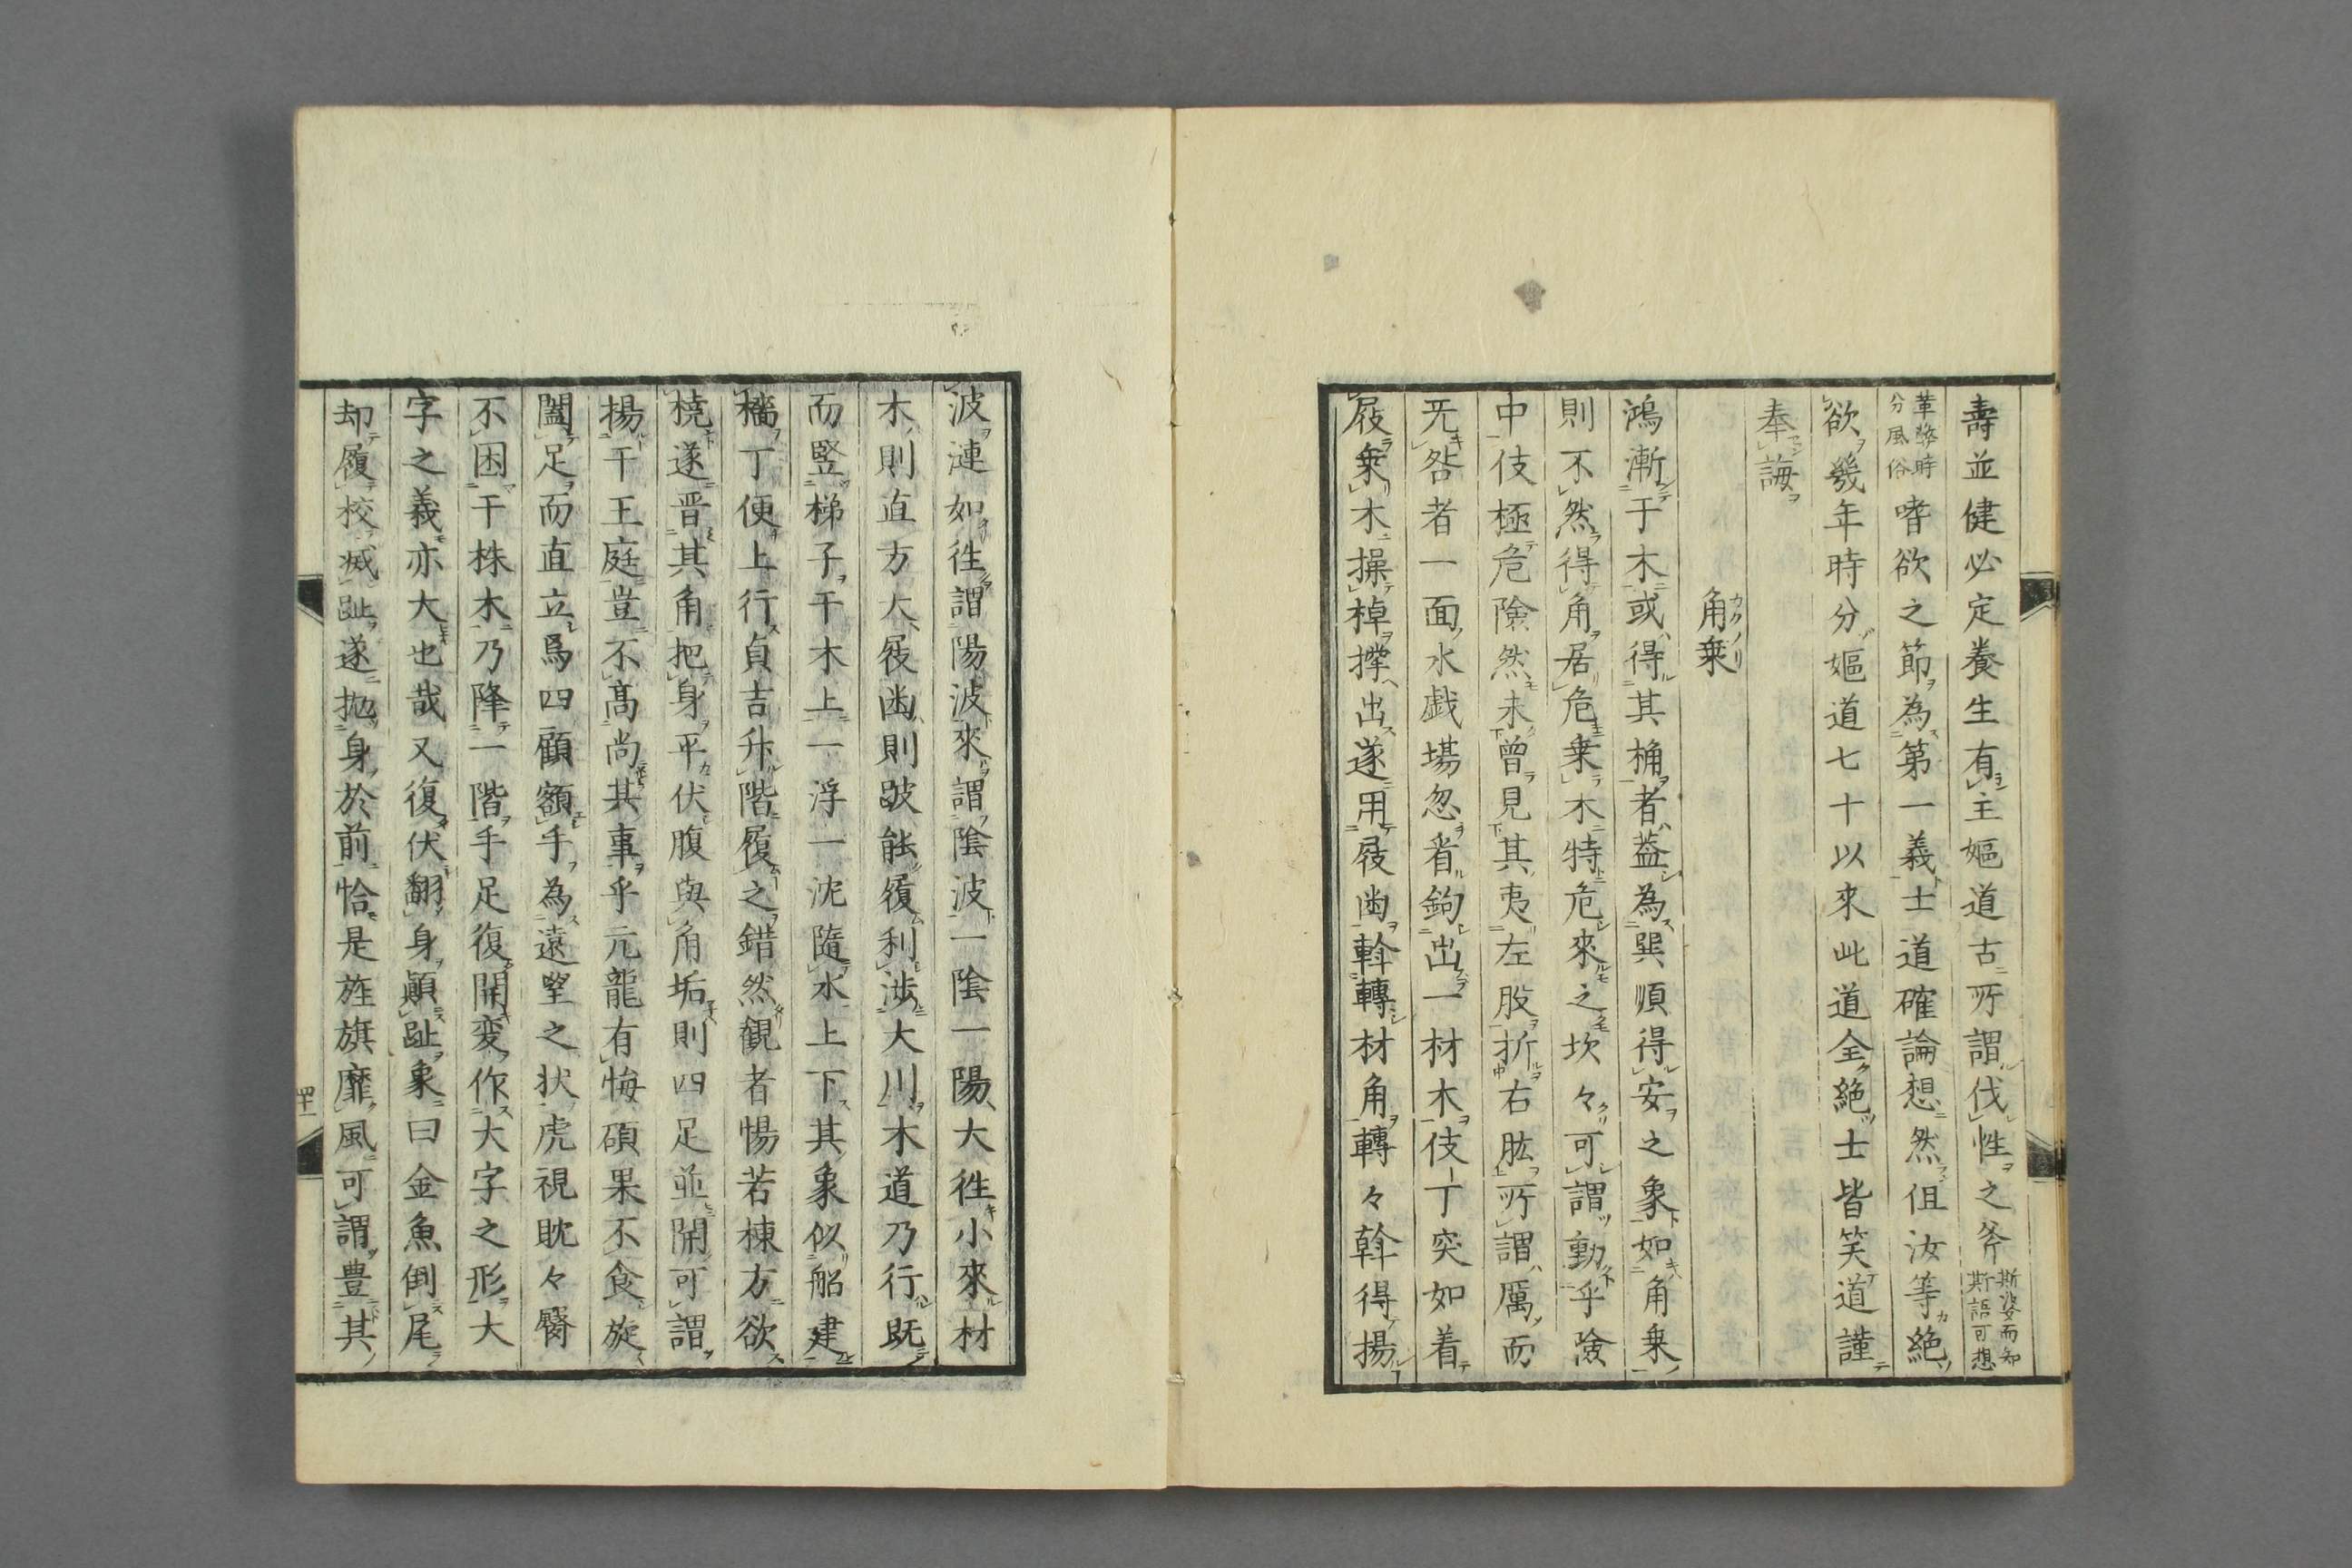 壽並健必定養生有主嫗道古所謂伐性之斧斯婆而知斯語可想
革弊時分風俗嗜欲之節為第一義士道確論想然但汝等絕
欲幾年時分嫗道七十以來此道全絕士皆笑道謹
奉誨
角乗
鴻漸于木或得其桷者蓋為巽順得安之象如角乗
則不然得角居危乗木特危來之坎々可謂動乎險
中伎極危險然未曽見其夷左股折右肱所謂厲而
无咎者一面水戯場忽看鉤出一材木伎丁突如着
屐乗木操棹撑出遂用屐歯斡轉材角轉々斡得揚
波漣如徃謂陽波來謂陰波一陰一陽大徃小來材
木則直方大屐歯則跛能履利渉大川木道乃行既
而竪梯子于木上一浮一沈隨水上下其象似船建
檣丁便上行貞吉升階履之錯然観者惕若棟方欲
橈遂晋其角把身平伏腹與角垢則四足並開可謂
揚于王庭豈不髙尚其事乎亢龍有悔碩果不食旋
闔足而直立焉四顧額手為遠望之状虎視眈々臀
不困于株木乃降一階手足復開変作大字之形大
字之義亦大也哉又復伏翻身顚趾象曰金魚倒尾
却履校滅趾遂抛身於前恰是旌旗靡風可謂豊其